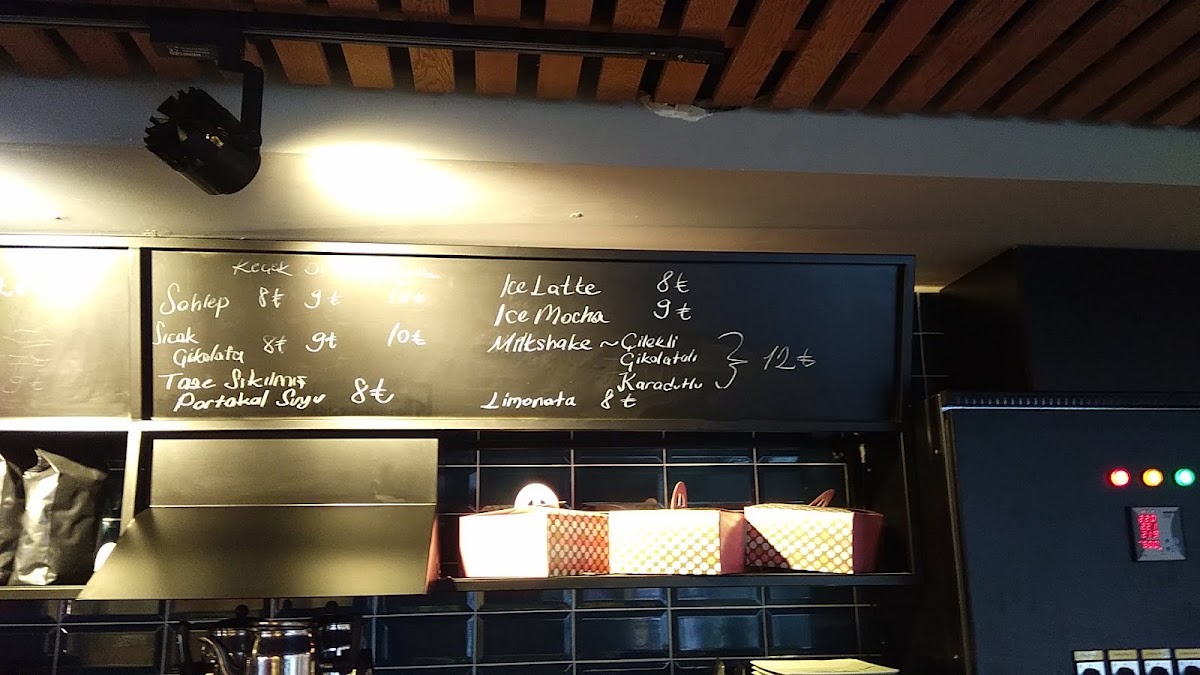 Küçük
Sahlep 8₺ 9₺ 10₺
Sıcak
Çikolata 8₺ 9₺ 10₺
Taze Sıkılmış
Portakal Suyu 8₺
Ice Latte 8₺
Ice Mocha 9₺
Milkshake ~ Çilekli
Çikolatalı
Karadutlu } 12₺
Limonata 8₺